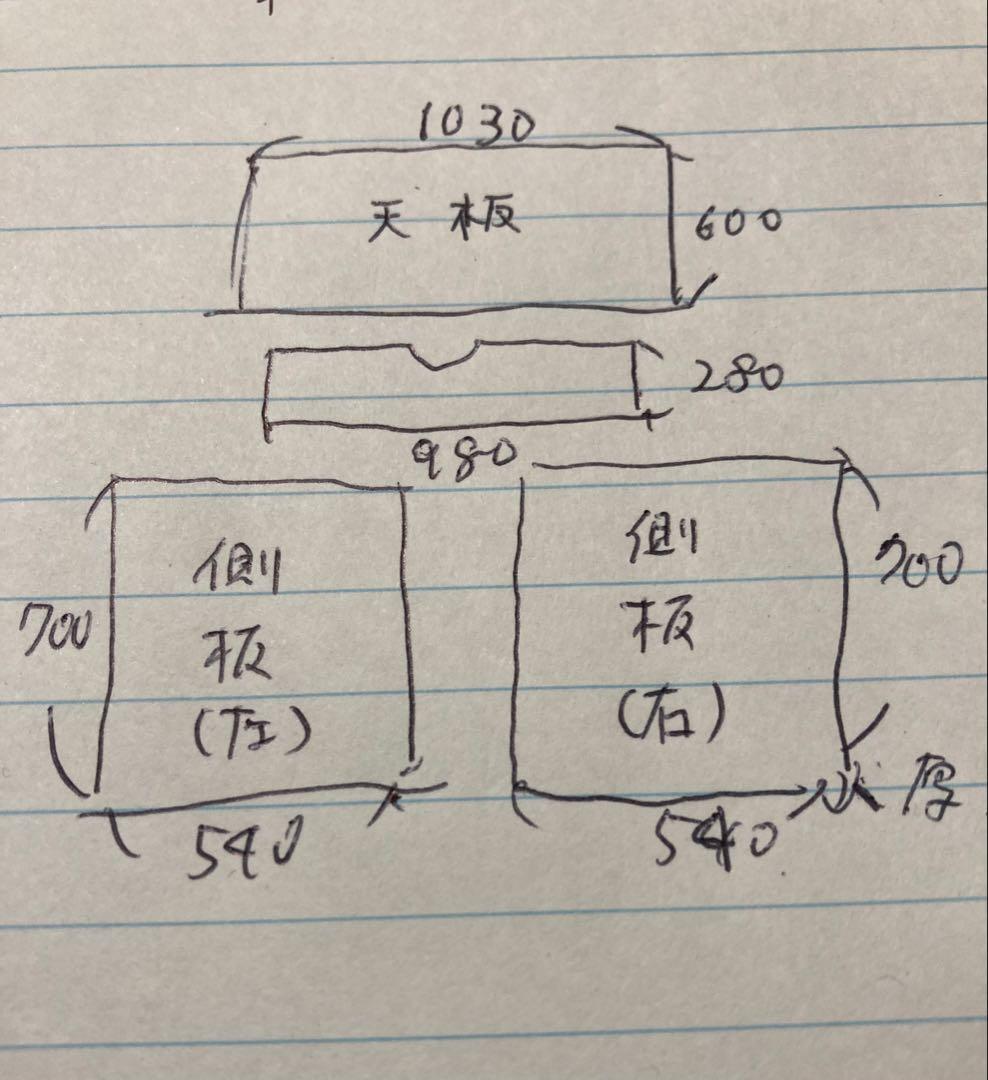 1030
天板
600
280
980
側
板
(左)
700
540
側
板
(右)
700
540
厚